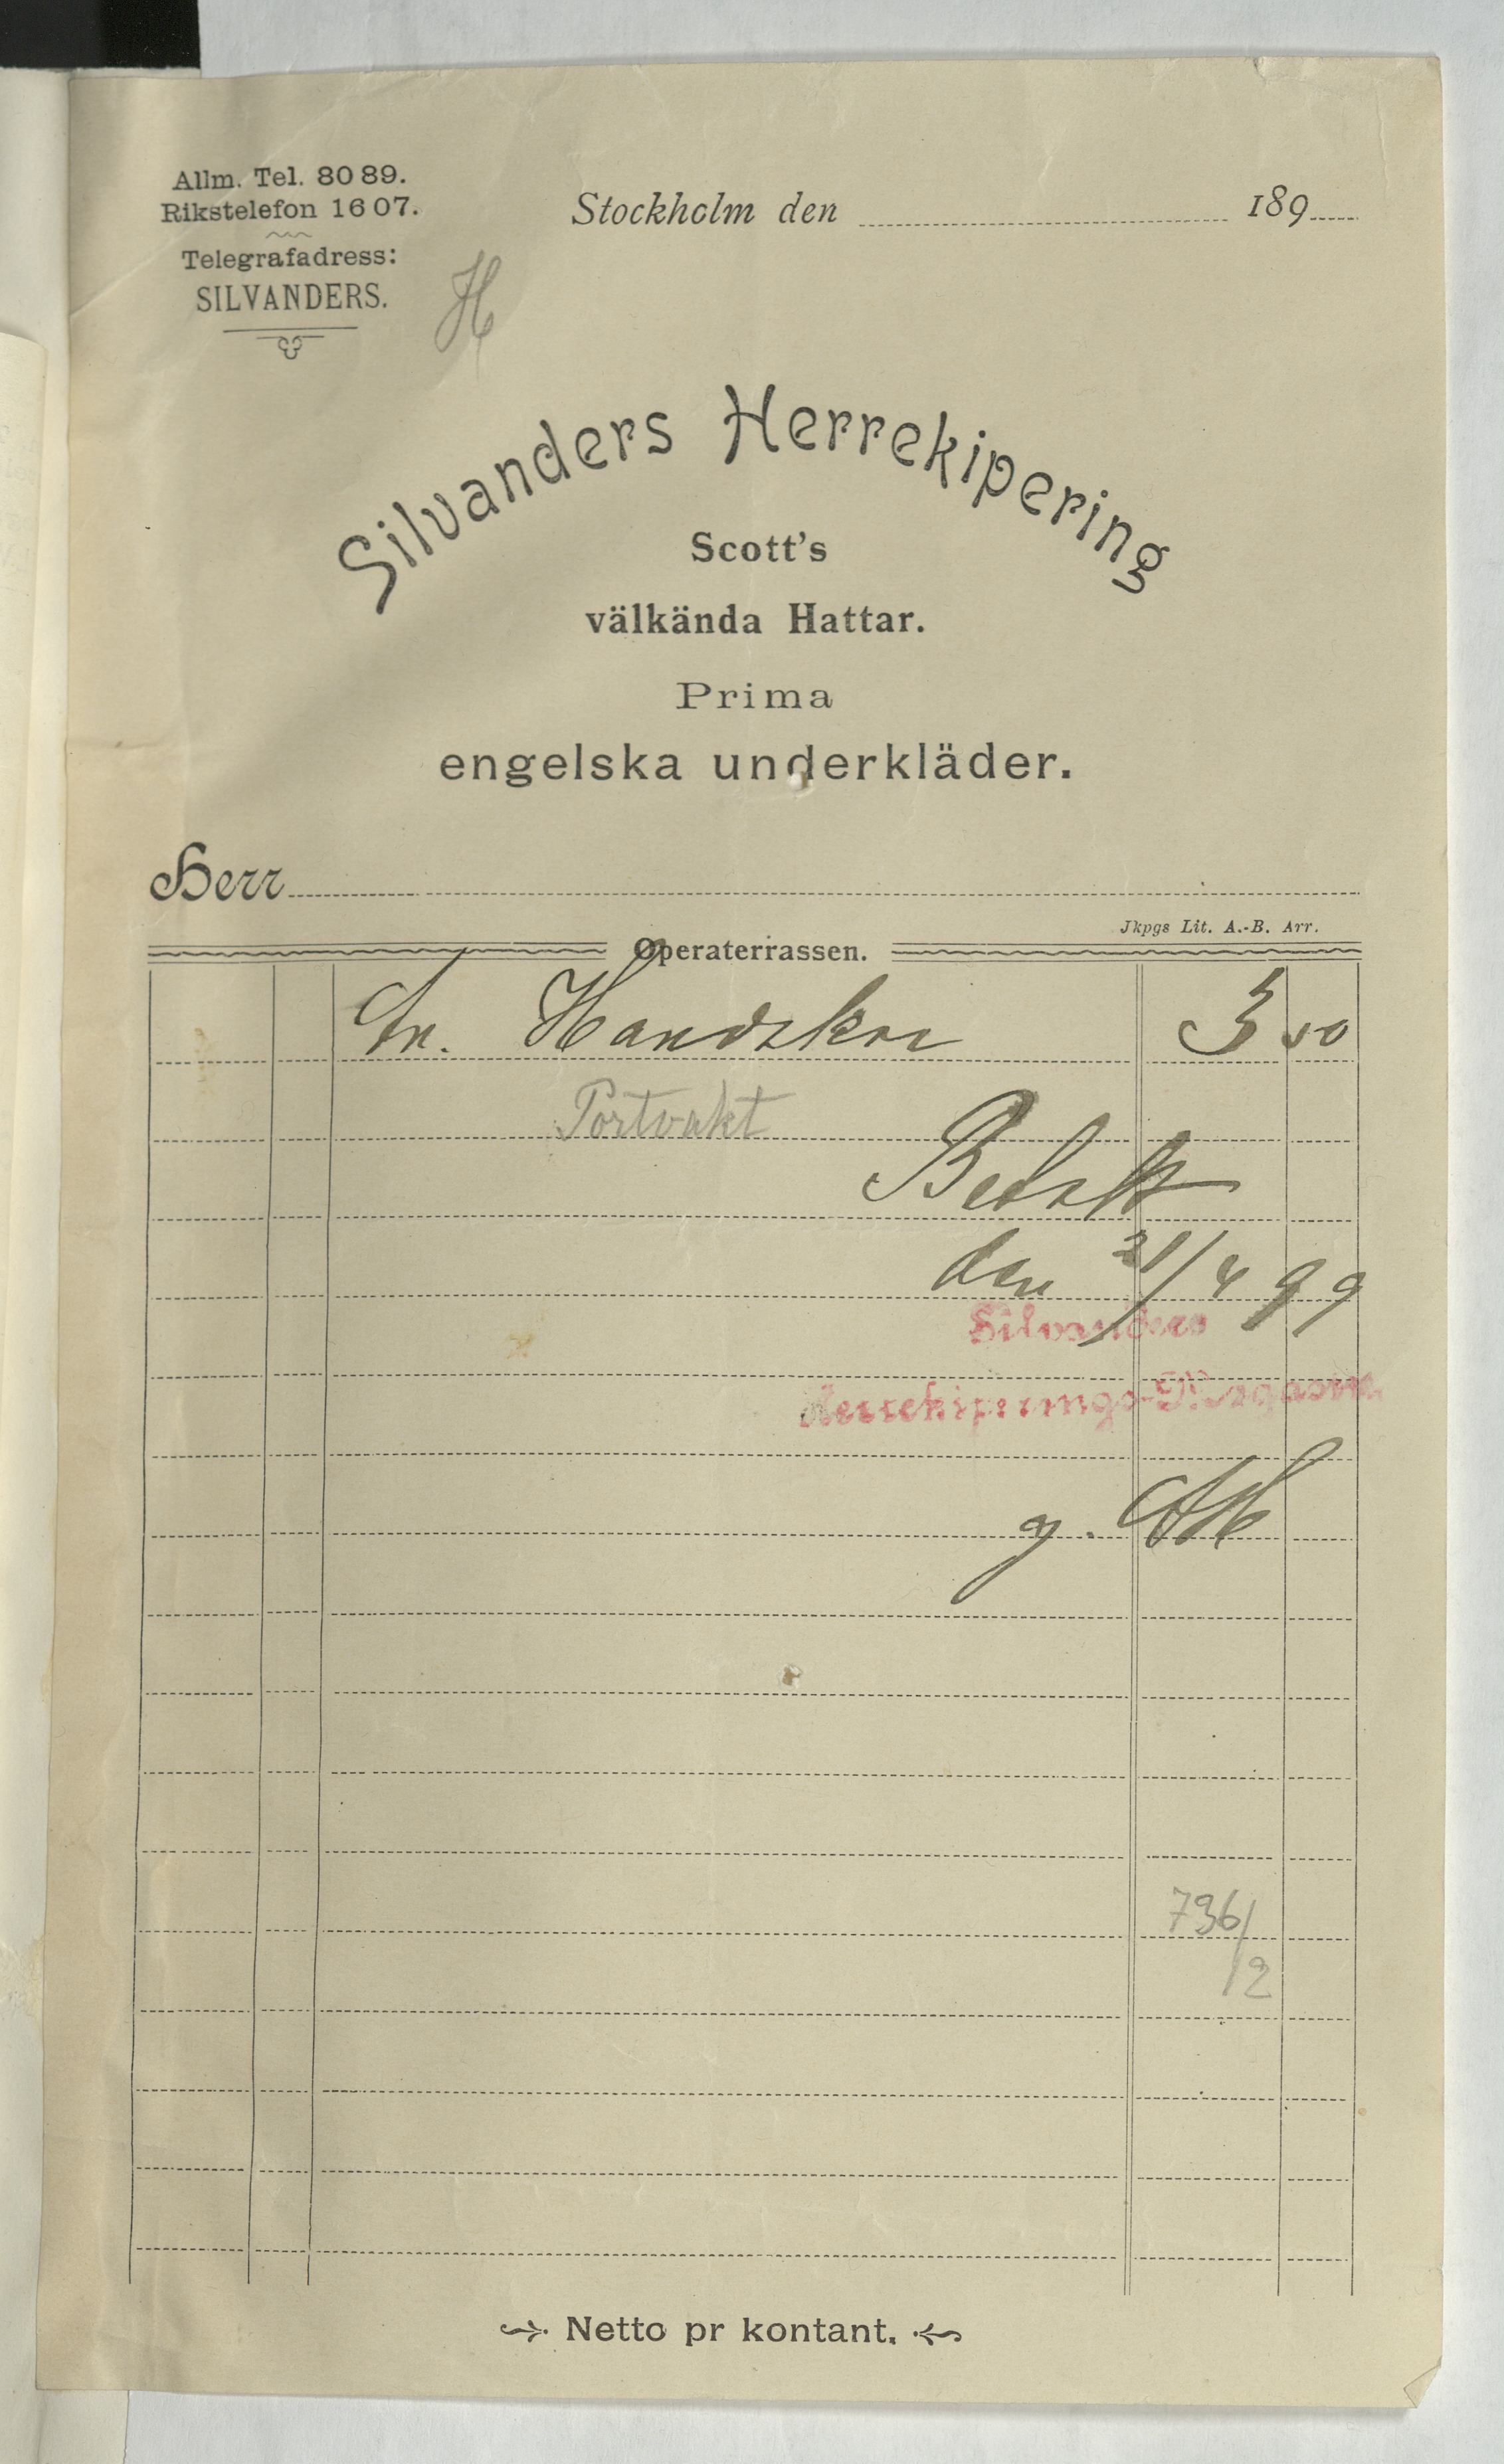 Allm. Tel. 80 89.
Rikstelefon 16 07.
Telegrafadress:
SILVANDERS.
Stockholm den 189
H
Silvanders Herrekipering
Scott's
välkända Hattar.
Prima
engelska underkläder.
Herr
Jkpgs Lit. A.-B. Arr.
Operaterrassen.
Handskar 3 50
Portvakt
Betalt
den 21/4 99
Silvanders
Herrekiperings-Magasin
736/2
Netto pr kontant.